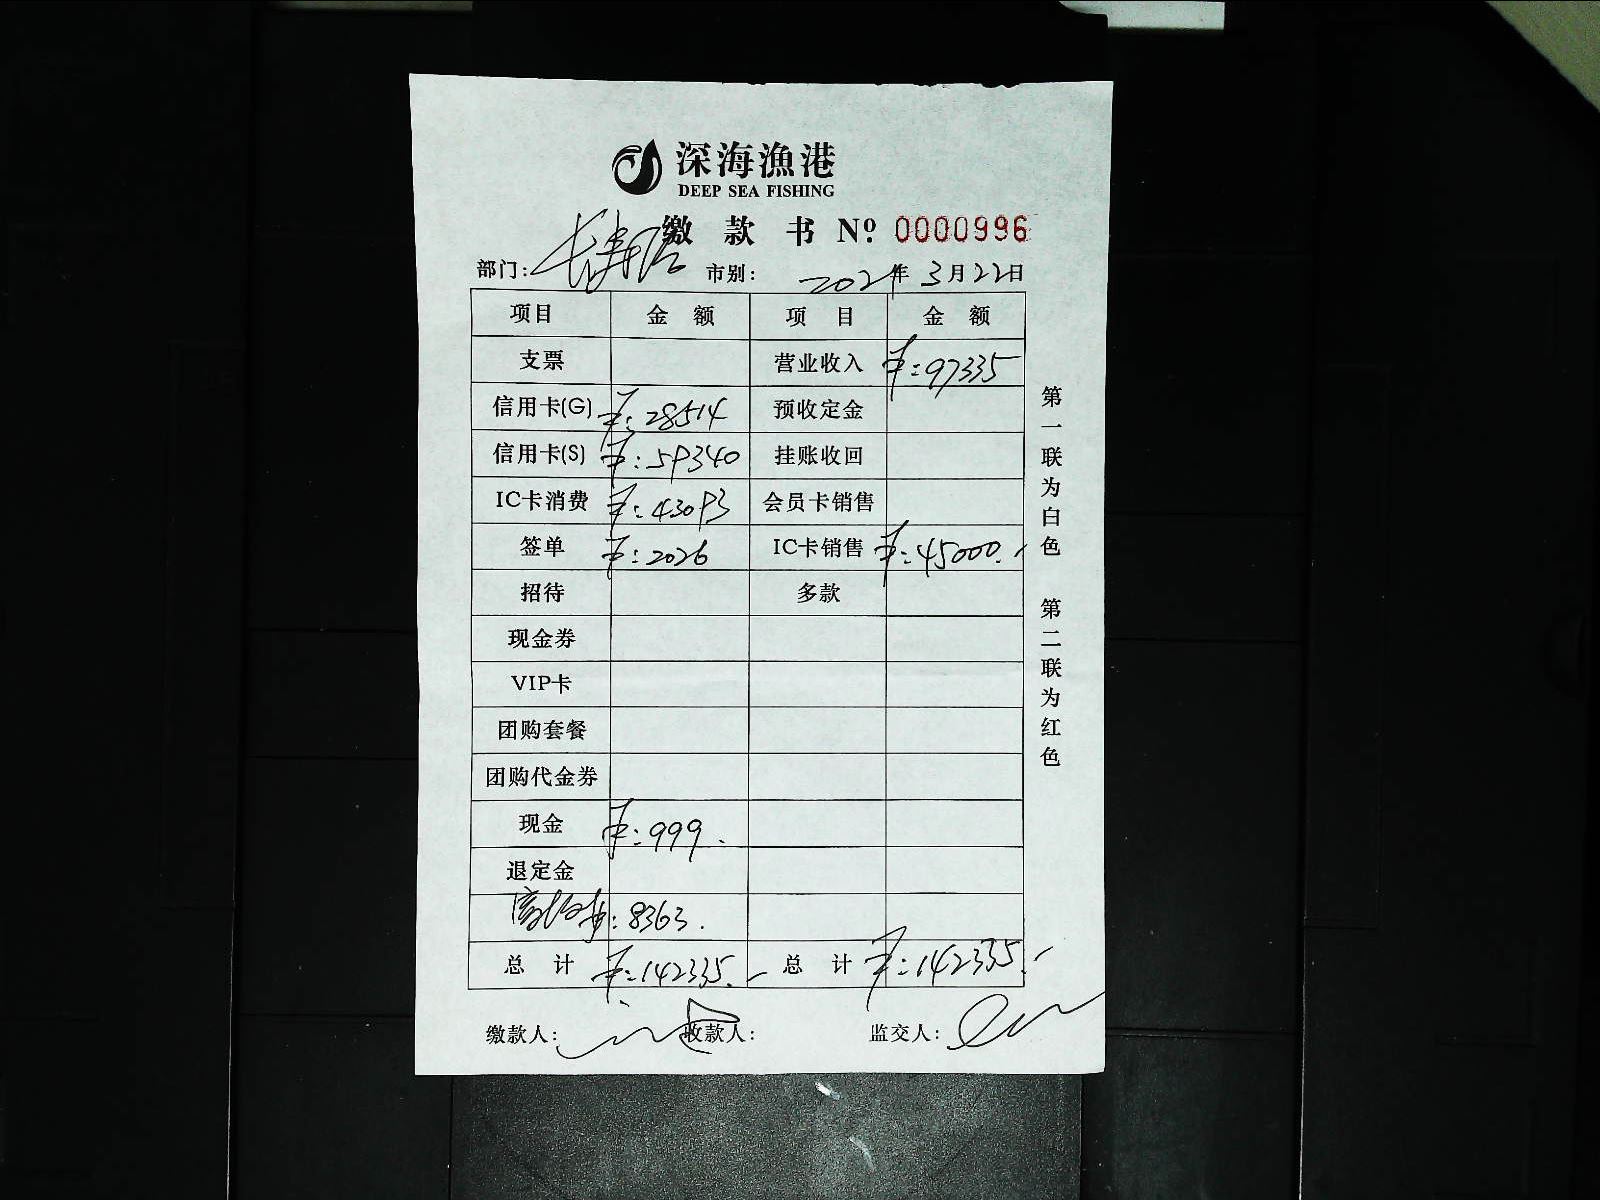 深海漁港
DEEP SEA FISHING
缴款书 Nº: 0000996
部门: 长寿路 市别: 2021年3月22日
项目 金额 项目 金额
支票 营业收入 ¥:97335
信用卡(G) ¥:28514 预收定金
信用卡(S) ¥:59340 挂账收回
IC卡消费 ¥:43093 会员卡销售
签单 ¥:2026 IC卡销售 ¥:45000.-
招待 多款
现金券
VIP卡
团购套餐
团购代金券
现金 ¥:999.
退定金
:8363.
总计 ¥:142335.- 总计 ¥:142335.-
缴款人: 收款人: 监交人:
第一联为白色 第二联为红色